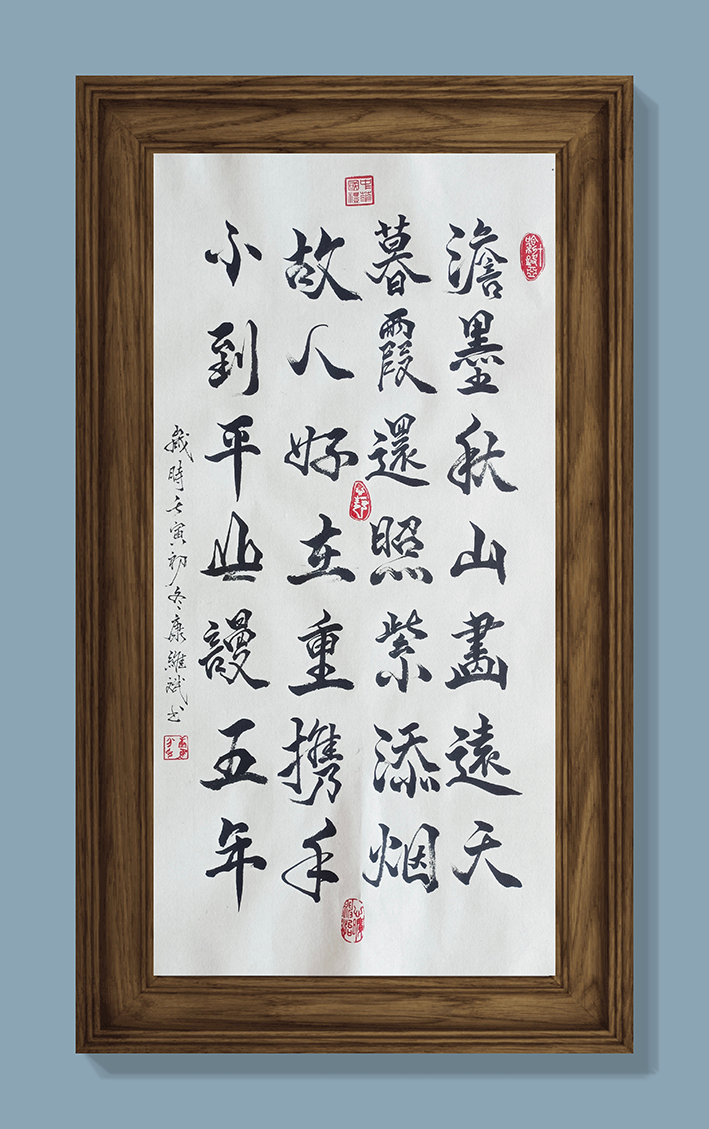 澹墨秋山畫遠天
暮霞還照紫添烟
故人好在重携手
不到平山謾五年
歲時壬寅初冬康維斌书